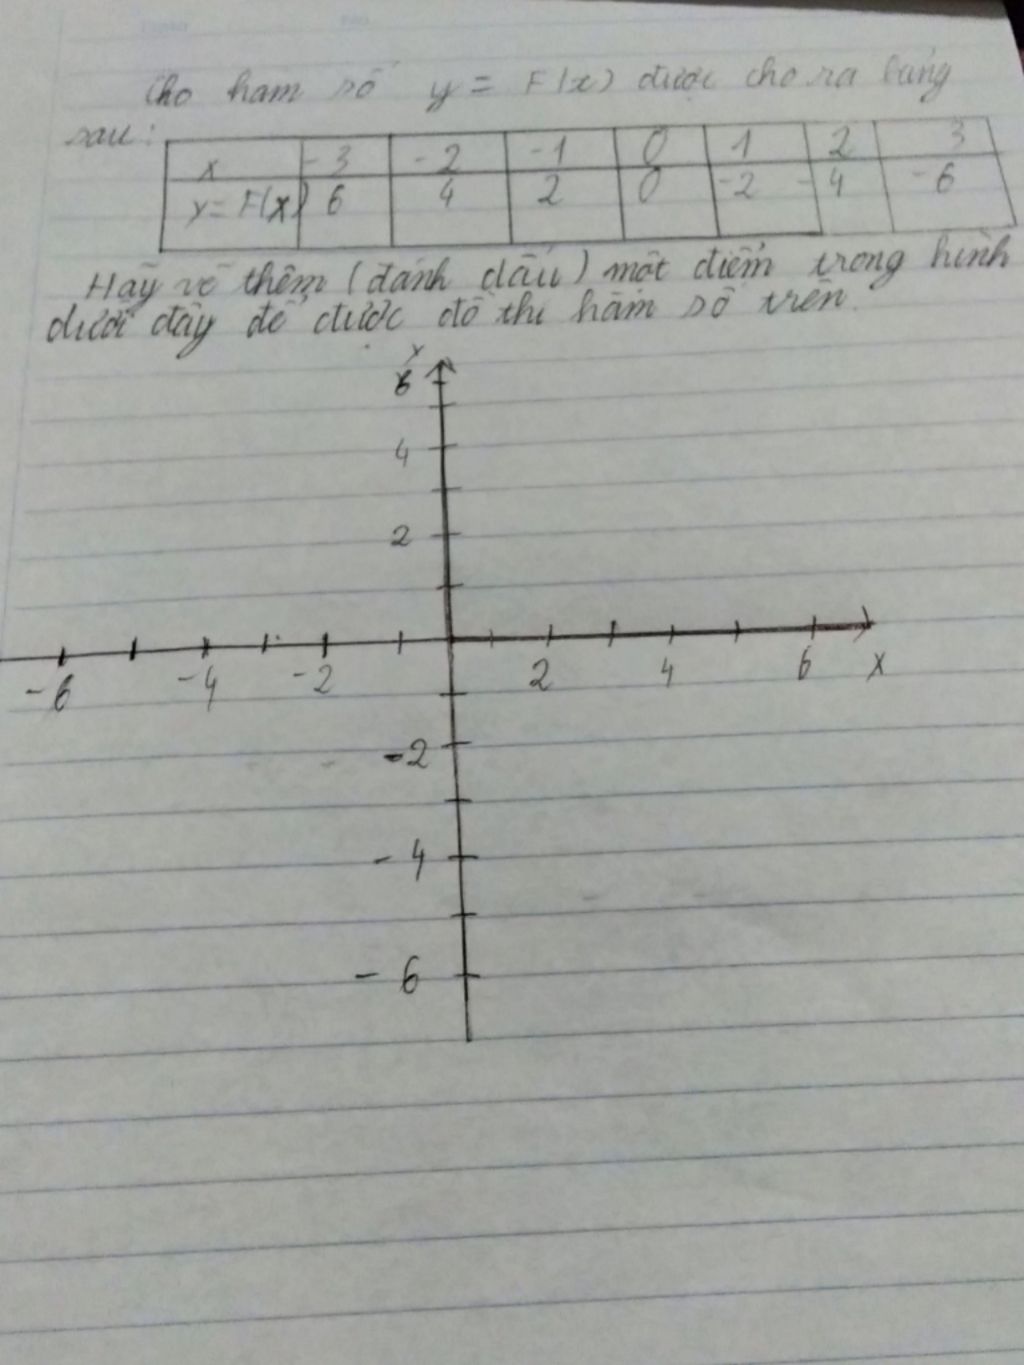 Cho hàm số y = F(x) được cho ra bảng
sau:
x -3 -2 -1 0 1 2 3
y = F(x) 6 4 2 0 -2 -4 -6
Hãy vẽ thêm (đánh dấu) một điểm trong hình
dưới đây để được đồ thị hàm số trên.
y
6
4
2
-6 -4 -2 2 4 6 x
-2
-4
-6